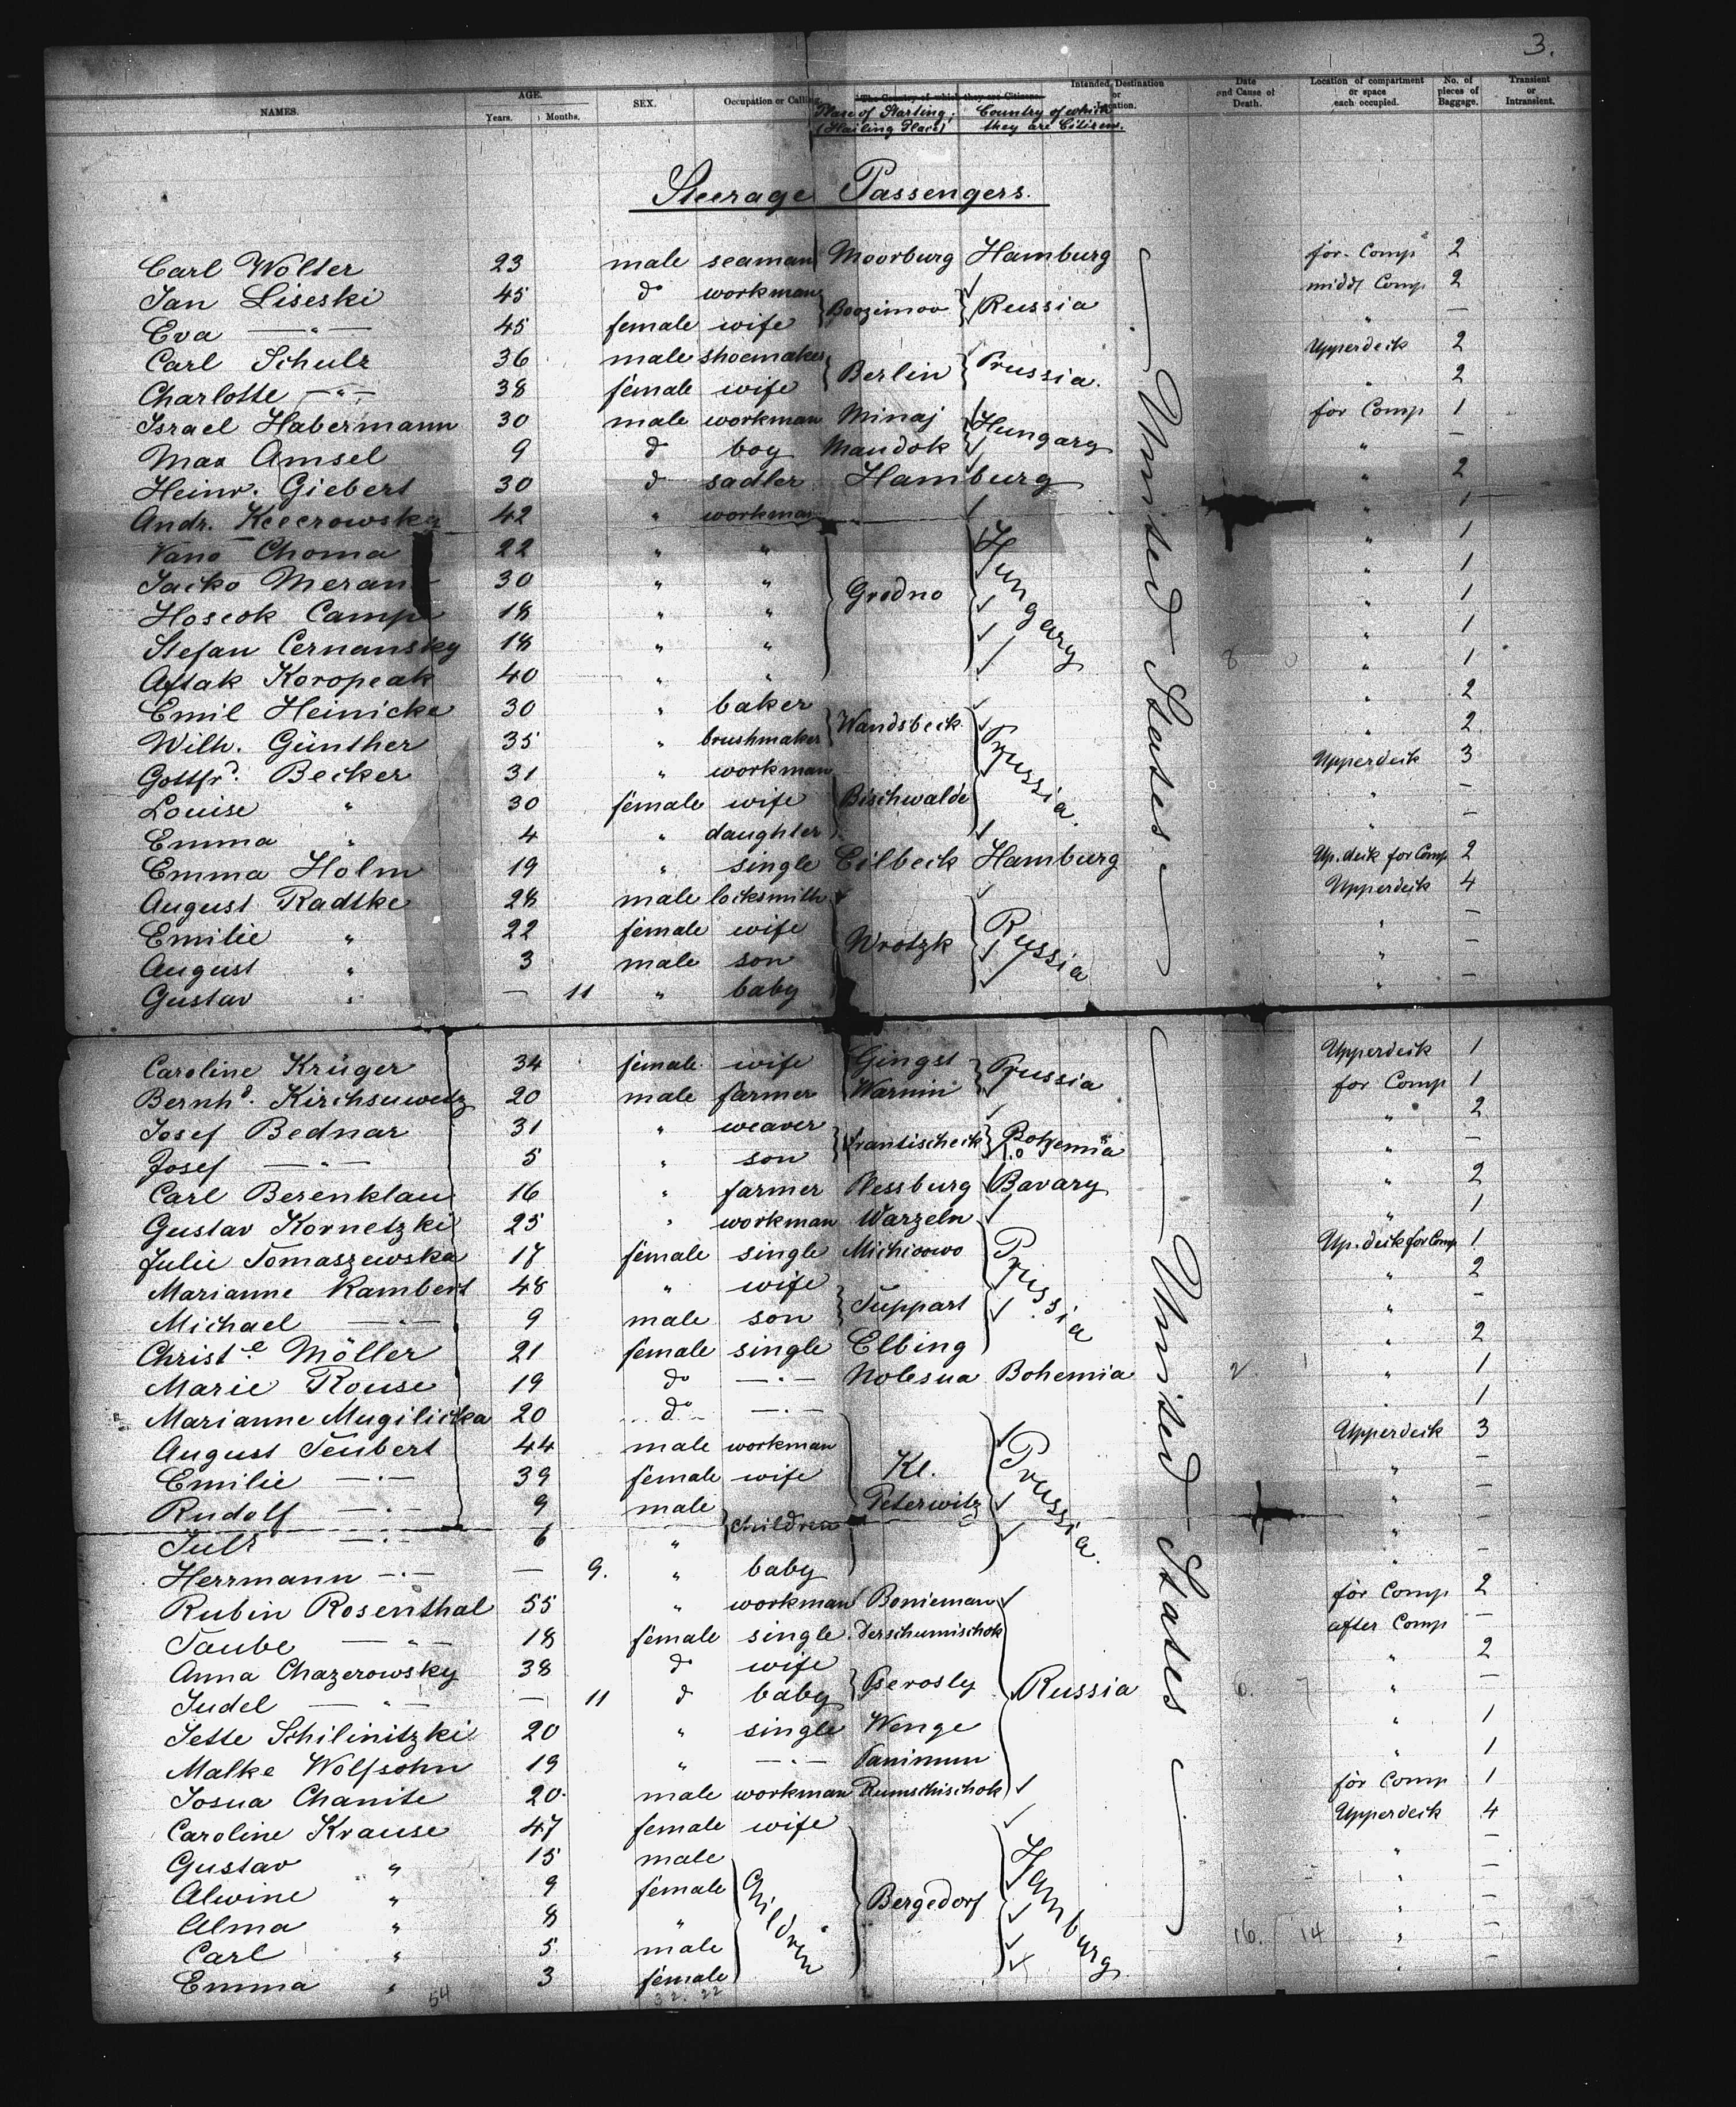 3.
NAMES. AGE. Years. Months. SEX. Occupation or Calling The Country of which they are Citizens. Place of Starting, (Hailing Place) Country of which they are Citizens. Intended Destination or Location. Date and Cause of Death. Location of compartment or space each occupied. No. of pieces of Baggage. Transient or Intransient.
Steerage Passengers.
Carl Wolter 23 male seaman Moorburg Hamburg for. Comp 2
Jan Liseski 45 do workman Boozimov Russia middl Comp 2
Eva — " — 45 female wife " —
Carl Schulz 36 male shoemaker Berlin Prussia. Upperdeck 2
Charlotte — " — 38 female wife " 2
Israel Habermann 30 male workman Minaj Hungary for Comp 1
Max Amsel 9 do boy Mandok " —
Heinr. Giebert 30 do sadler Hamburg " 2
Andr. Kecerowsky 42 " workman " 1
Vano Choma 22 " " Hungary " 1
Jacko Meran 30 " " Grodno " 1
Hoscok Camp 18 " " " 1
Stefan Cernansky 18 " " " 1
Aftak Koropeak 40 " " " 1
Emil Heinicke 30 " baker Wandsbeck Prussia. " 2
Wilh. Günther 35 " brushmaker " 2
Gottfr. Becker 31 " workman Upperdeck 3
Louise " 30 female wife Bischwalde " —
Emma " 4 " daughter " —
Emma Holm 19 " single Eilbeck Hamburg Up. deck for Comp 2
August Radtke 28 male locksmith Upperdeck 4
Emilie " 22 female wife Wrotzk Russia " —
August " 3 male son " —
Gustav " — 11 " baby " —
United States
Caroline Krüger 34 female wife Gingst Prussia Upperdeck 1
Bernhd. Kirchsuwetz 20 male farmer Warnin for Comp 1
Josef Bednar 31 " weaver Frantischeck Bohemia " 2
Josef — " — 5 " son " —
Carl Berenklau 16 " farmer Bavary " 2
Gustav Kornetzki 25 " workman Warzeln " 1
Julie Tomaszewska 17 female single Michioowo Prussia Up. deck for Comp 1
Marianne Rambert 48 " wife Tuppart " 2
Michael — " — 9 male son " —
Christe. Möller 21 female single Elbing " 2
Marie Rouse 19 do — " — Nolesua Bohemia 2 " 1
Marianne Mugilicka 20 do — " — 1
August Teubert 44 male workman Kl. Peterwitz Prussia. Upperdeck 3
Emilie — " — 39 female wife " —
Rudolf — " — 9 male children " —
Juls — " — 6 " " —
Herrmann — " — — 9. " baby " —
Rubin Rosenthal 55 " workman Bonieman for Comp 2
Taube — " — 18 female single Derschumischok after Comp —
Anna Chazerowsky 38 do wife Berosly Russia " 2
Judel — " — — 11 do baby 6. 7 " —
Jette Schilinitzki 20 " single Wenge " 1
Malke Wolfsohn 19 " — " — Panimun " 1
Josua Chanite 20 male workman Rumschischok for Comp 1
Caroline Krause 47 female wife Upperdeck 4
Gustav " 15 male Children " —
Alwine " 9 female Bergedorf Hamburg " —
Alma " 8 " " —
Carl " 5 male 16. 14 " —
Emma " 3 female " —
United States
54 32. 22